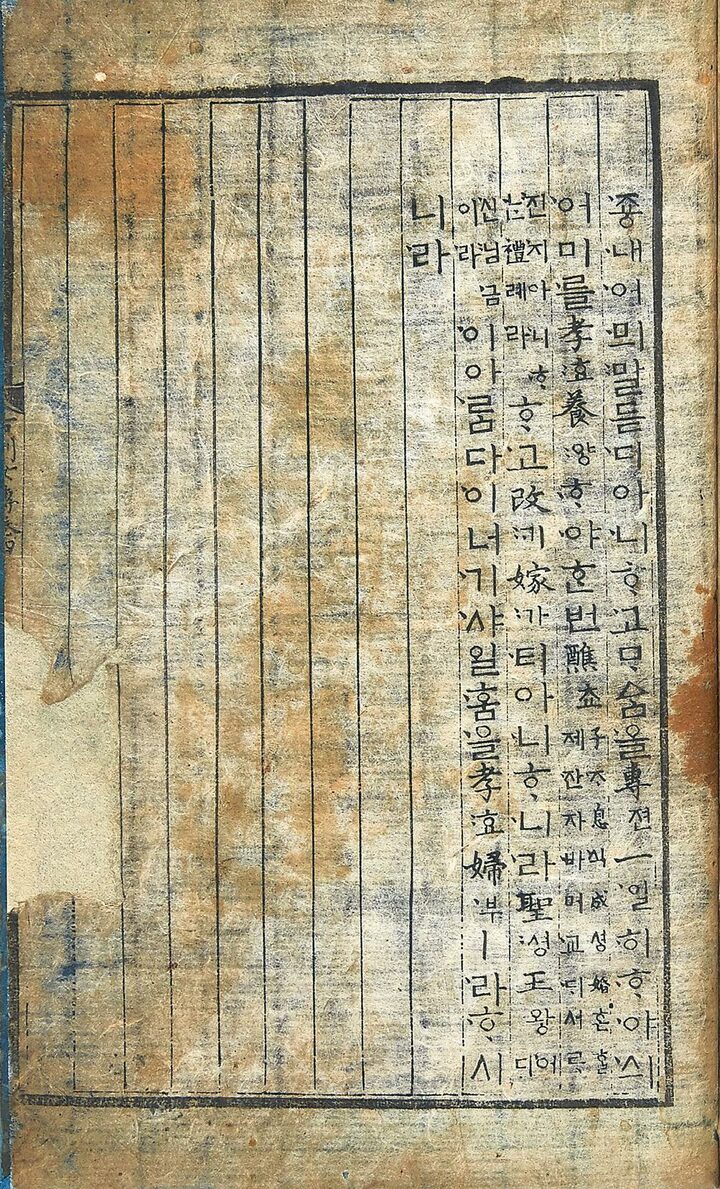 죵내어믜말듣디아니ᄒᆞ고ᄆᆞ숨을專젼一일히ᄒᆞ야싀
어미를孝효養양ᄒᆞ야ᄒᆞᆫ번醮쵸子ᄌᆞ息식成셩婚혼ᄒᆞᆯ제잔자바머교디서르
진지아니ᄒᆞ는禮례라ᄒᆞ고改ᄀᆡ嫁가티아니ᄒᆞ니라聖셩王왕어디
신님금이라이아ᄅᆞᆷ다이너기샤일홈을孝효婦부ㅣ라ᄒᆞ시
니라